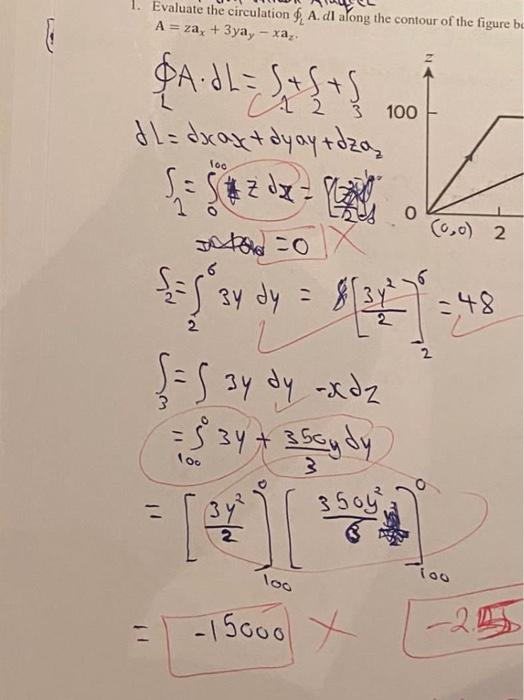 1. Evaluate the circulation ∮L A. dl along the contour of the figure be
A = zax + 3yay − xaz.
∮L A·dL = ∫1 + ∫2 + ∫3
z
100
dL = dxax + dyay + dzaz
∫1 = ∫0^100 z dx =
0
(0,0) 2
= 0 X
∫2 = ∫2^6 3y dy = [3y²/2]2^6 = 48
∫3 = ∫ 3y dy - xdz
= ∫100^0 3y + 350y/3 dy
= [3y²/2]100^0 [350y²/6]100^0
= -15000 X